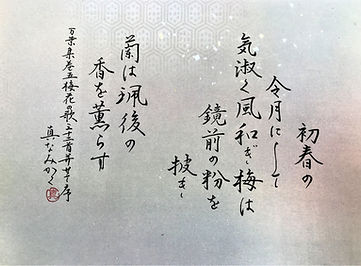 初春の
令月にして
気淑く風和ぎ梅は
鏡前の粉を
披き
蘭は珮後の
香を薫らす
万葉集巻五梅花の歌三十二首并せて序
真なみかく